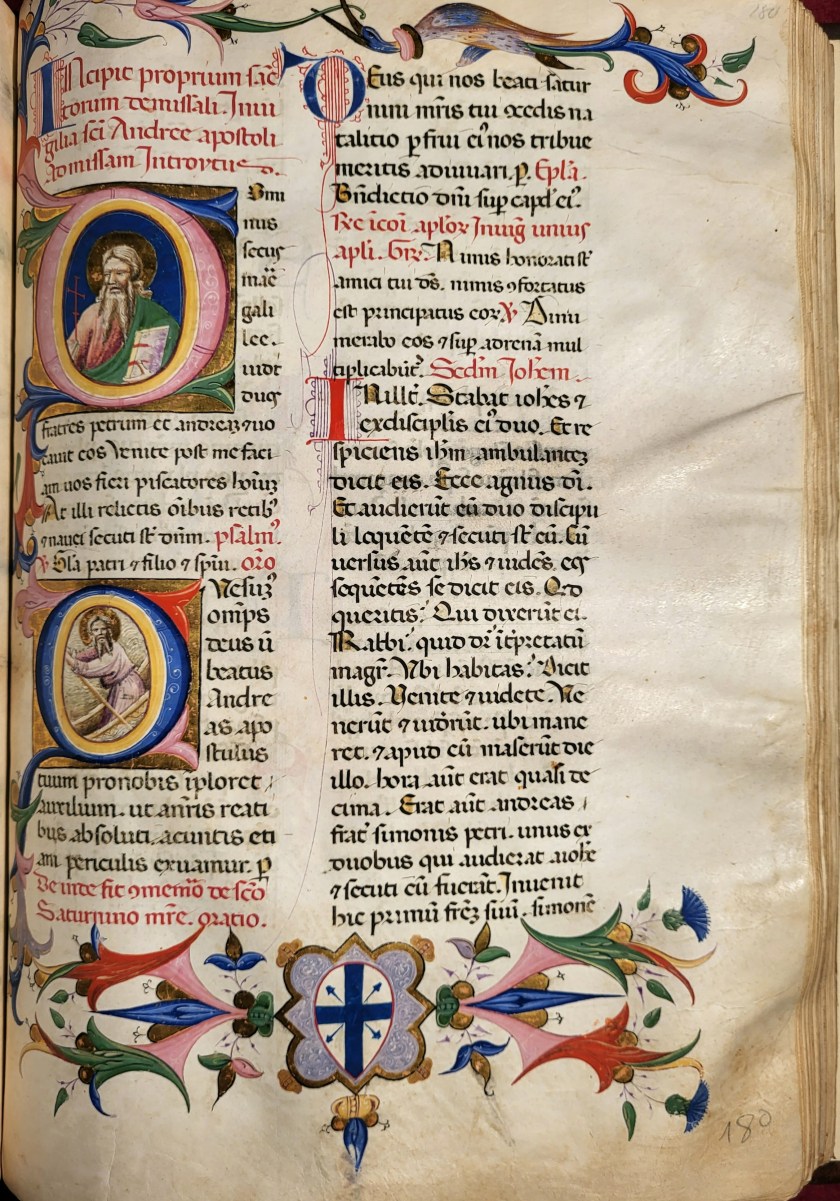 INcipit proprium sāc
torum de missali. In ui
gilia sci Andree apostoli
ad missam Introytus.
Dmi
nus
secus
mare
gali
lee.
uidit
duos
fratres petrum et andreaz ⁊uo
cauit eos Venite post me faci
am uos fieri piscatores hoīuz
At illi relictis oībus retib⁹
⁊naui secuti st̄ dnm. psalm⁹.
V Gl̄a patri ⁊ filio ⁊ spiri. or̄o
Qvesuz⁹
omp̄s
deus ū
beatus
Andre
as apo
stulus
tuum pro nobis īploret
auxilium. ut an̄ris reati
bus absoluti. a cuntis eti
am periculis exuamur. p
De inde fit 9memō de scō
Saturnino mr̄e. oratio.
DEus qui nos beati satur
nini mr̄is tui 9cedis na
talitio p̱frui ei⁹ nos tribue
meritis adiuuari. p̱. Ep̄la.
Bn̄dictio dnī sup̱ capd̄ ei⁹.
Re īcōi ap̄lor̄ In uiḡ unius
apl̄i. Gr̄. Nimis honorati st̄
amici tui ds̄. nimis 9fortatus
est principatus eor̄ V Dinu
merabo eos ⁊ sup̱ adrenā mul
tiplicabūt⁹. Sedm̄ Joh̄em.
INill̄t̄. Stabat ioh̄es ⁊
ex discipl̄is ei⁹ duo. Et re
spiciens ihm̄ ambulantez
dicit eis. Ecce agnus dī.
Et audierūt eū duo discipu
li loquētē ⁊ secuti st̄ eū. Cū
uersus aut̄ ih̄s ⁊ uidēs eos
sequētēs se dicit eis. Qd
queritis? Qui dixerūt ei.
Rabbi. quid dr̄ īt̄pretatū
magr̄. Vbi habitas? Dicit
illis. Venite ⁊ uidete. Ve
nerūt ⁊ uidērūt. ubi mane
ret. ⁊ apud eū māserūt die
illo. hora aut̄ erat quasi de
cima. Erat aut̄ andreas
frat̄ simonis petri. unus ex
duobus qui audierāt a ioh̄e
⁊ secuti eū fuerāt. Inuenit
hic primū fr̄ez suū. simonē
180
180